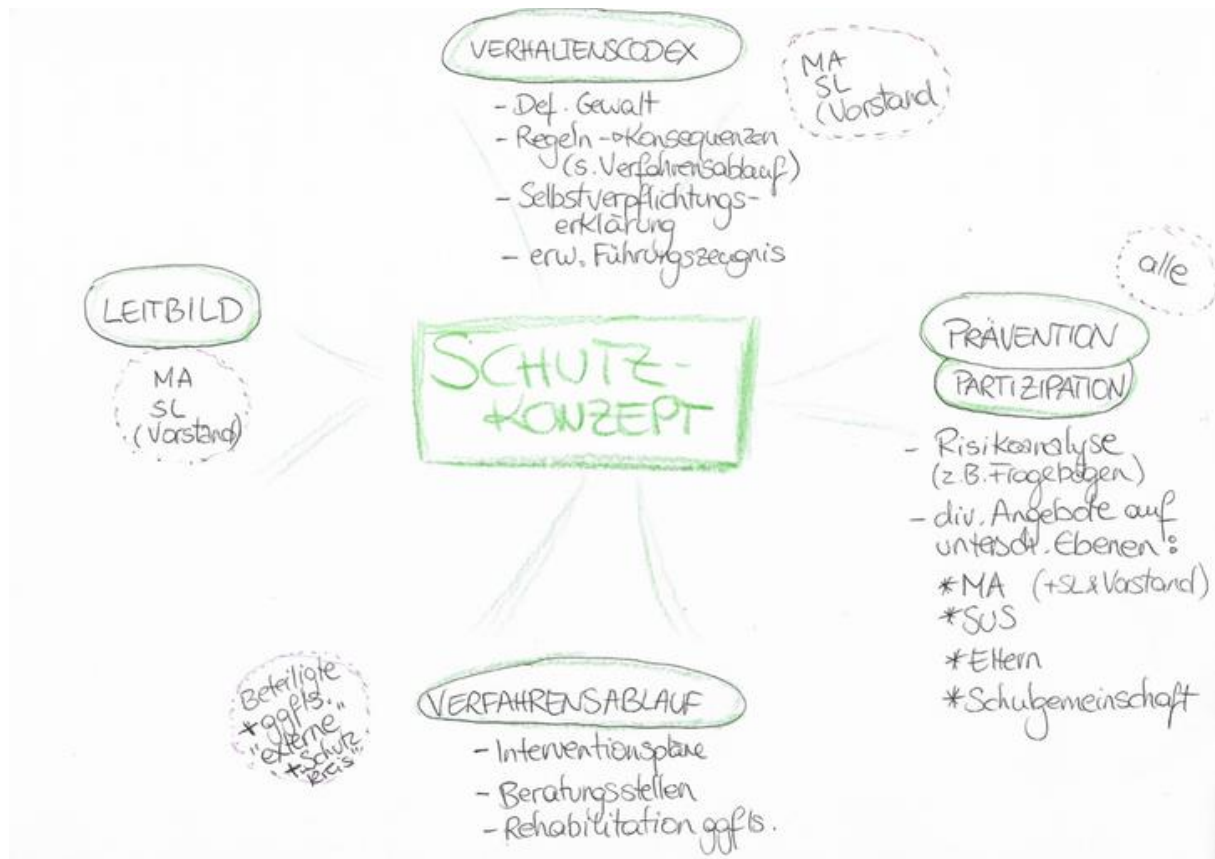 VERHALTENSCODEX
- Def. Gewalt
- Regeln → Konsequenzen
(s. Verfahrensablauf)
- Selbstverpflichtungs-
erklärung
- erw. Führungszeugnis
MA
SL
(Vorstand
LEITBILD
MA
SL
(Vorstand)
SCHUTZ-
KONZEPT
alle
PRÄVENTION
PARTIZIPATION
- Risikoanalyse
(z.B. Fragebögen)
- div. Angebote auf
untersch. Ebenen:
*MA (+SL & Vorstand)
*SUS
*Eltern
*Schulgemeinschaft
Beteiligte
+ ggfls.
"externe"
+ "Schutz
kreis"
VERFAHRENSABLAUF
- Interventionspläne
- Beratungsstellen
- Rehabilitation ggfls.